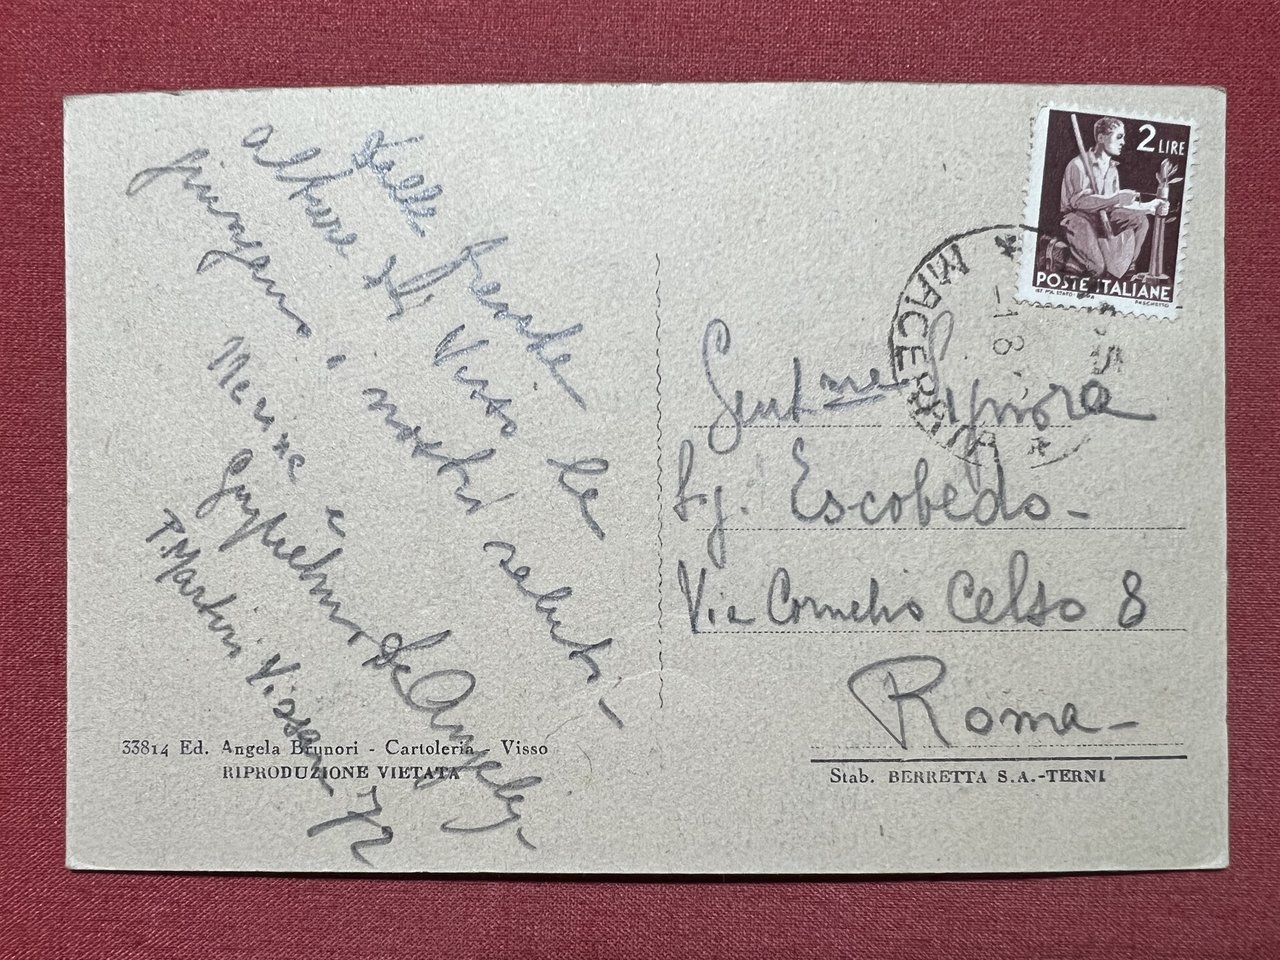 Dalle fresche
alture di Visso le
giungano i nostri saluti -
Nerina e
Guglielmo De Angelis -
P. Martiri Vissani 72
33814 Ed. Angela Brunori - Cartoleria - Visso
RIPRODUZIONE VIETATA
2 LIRE
POSTE ITALIANE
MACERATA
Gent.ma Signora
Escobedo -
Via Cornelio Celso 8
Roma -
Stab. BERRETTA S.A.-TERNI